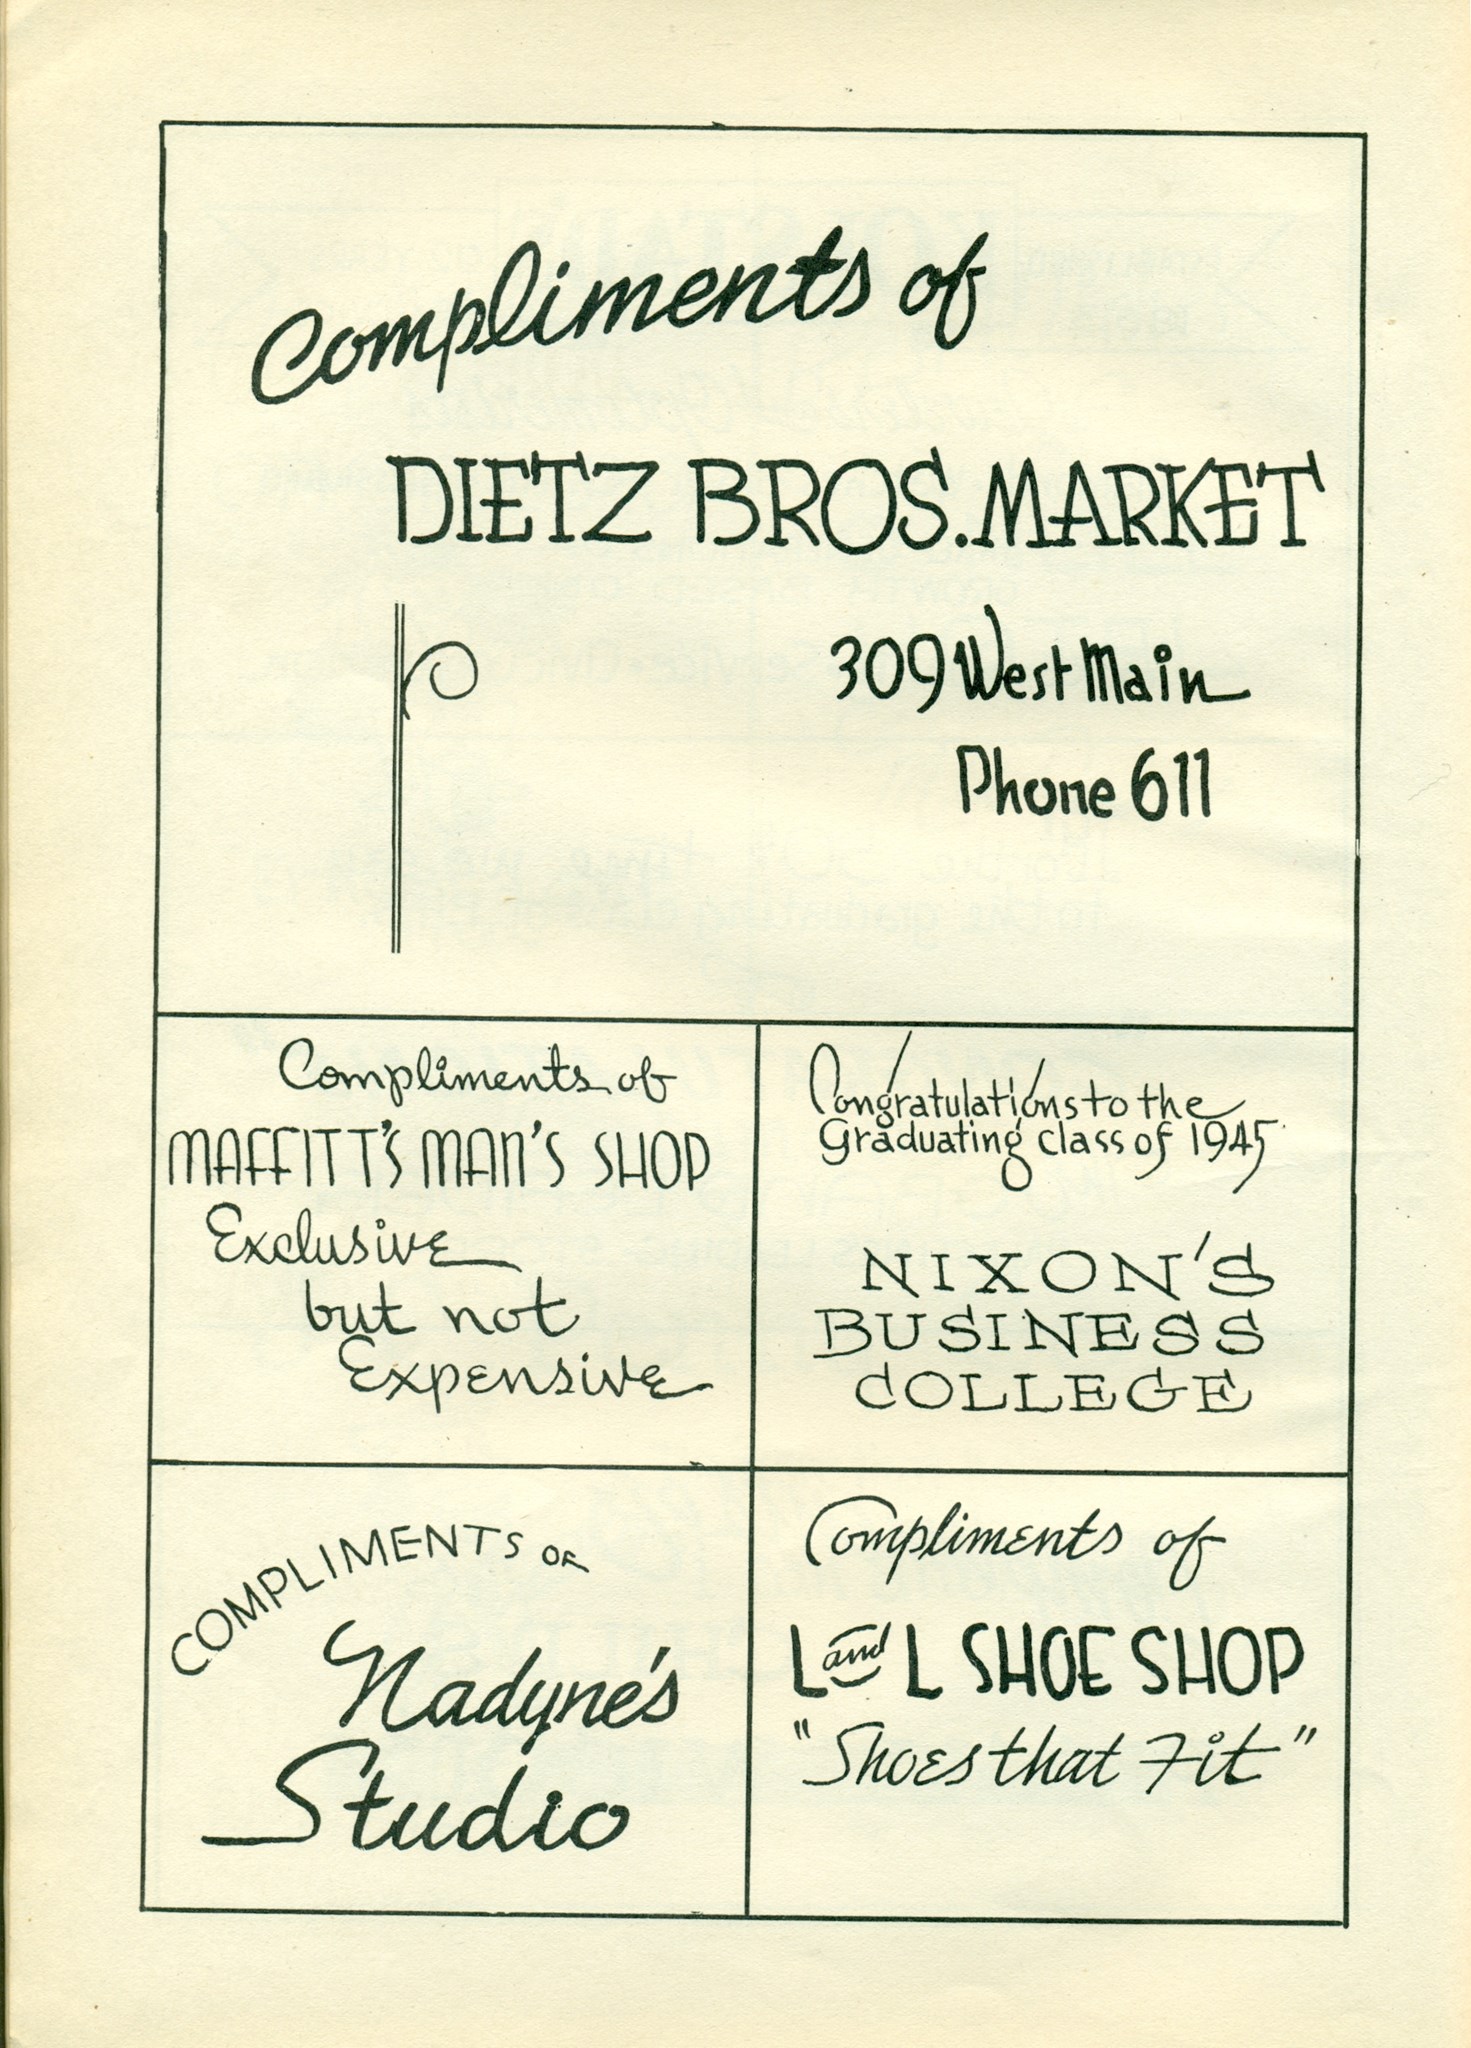 Compliments of
DIETZ BROS. MARKET
309 West Main
Phone 611
Compliments of
MAFFITT'S MAN'S SHOP
Exclusive
but not
Expensive
Congratulations to the
Graduating class of 1945
NIXON'S
BUSINESS
COLLEGE
COMPLIMENTS OF
Nadyne's
Studio
Compliments of
L and L SHOE SHOP
"Shoes that Fit"